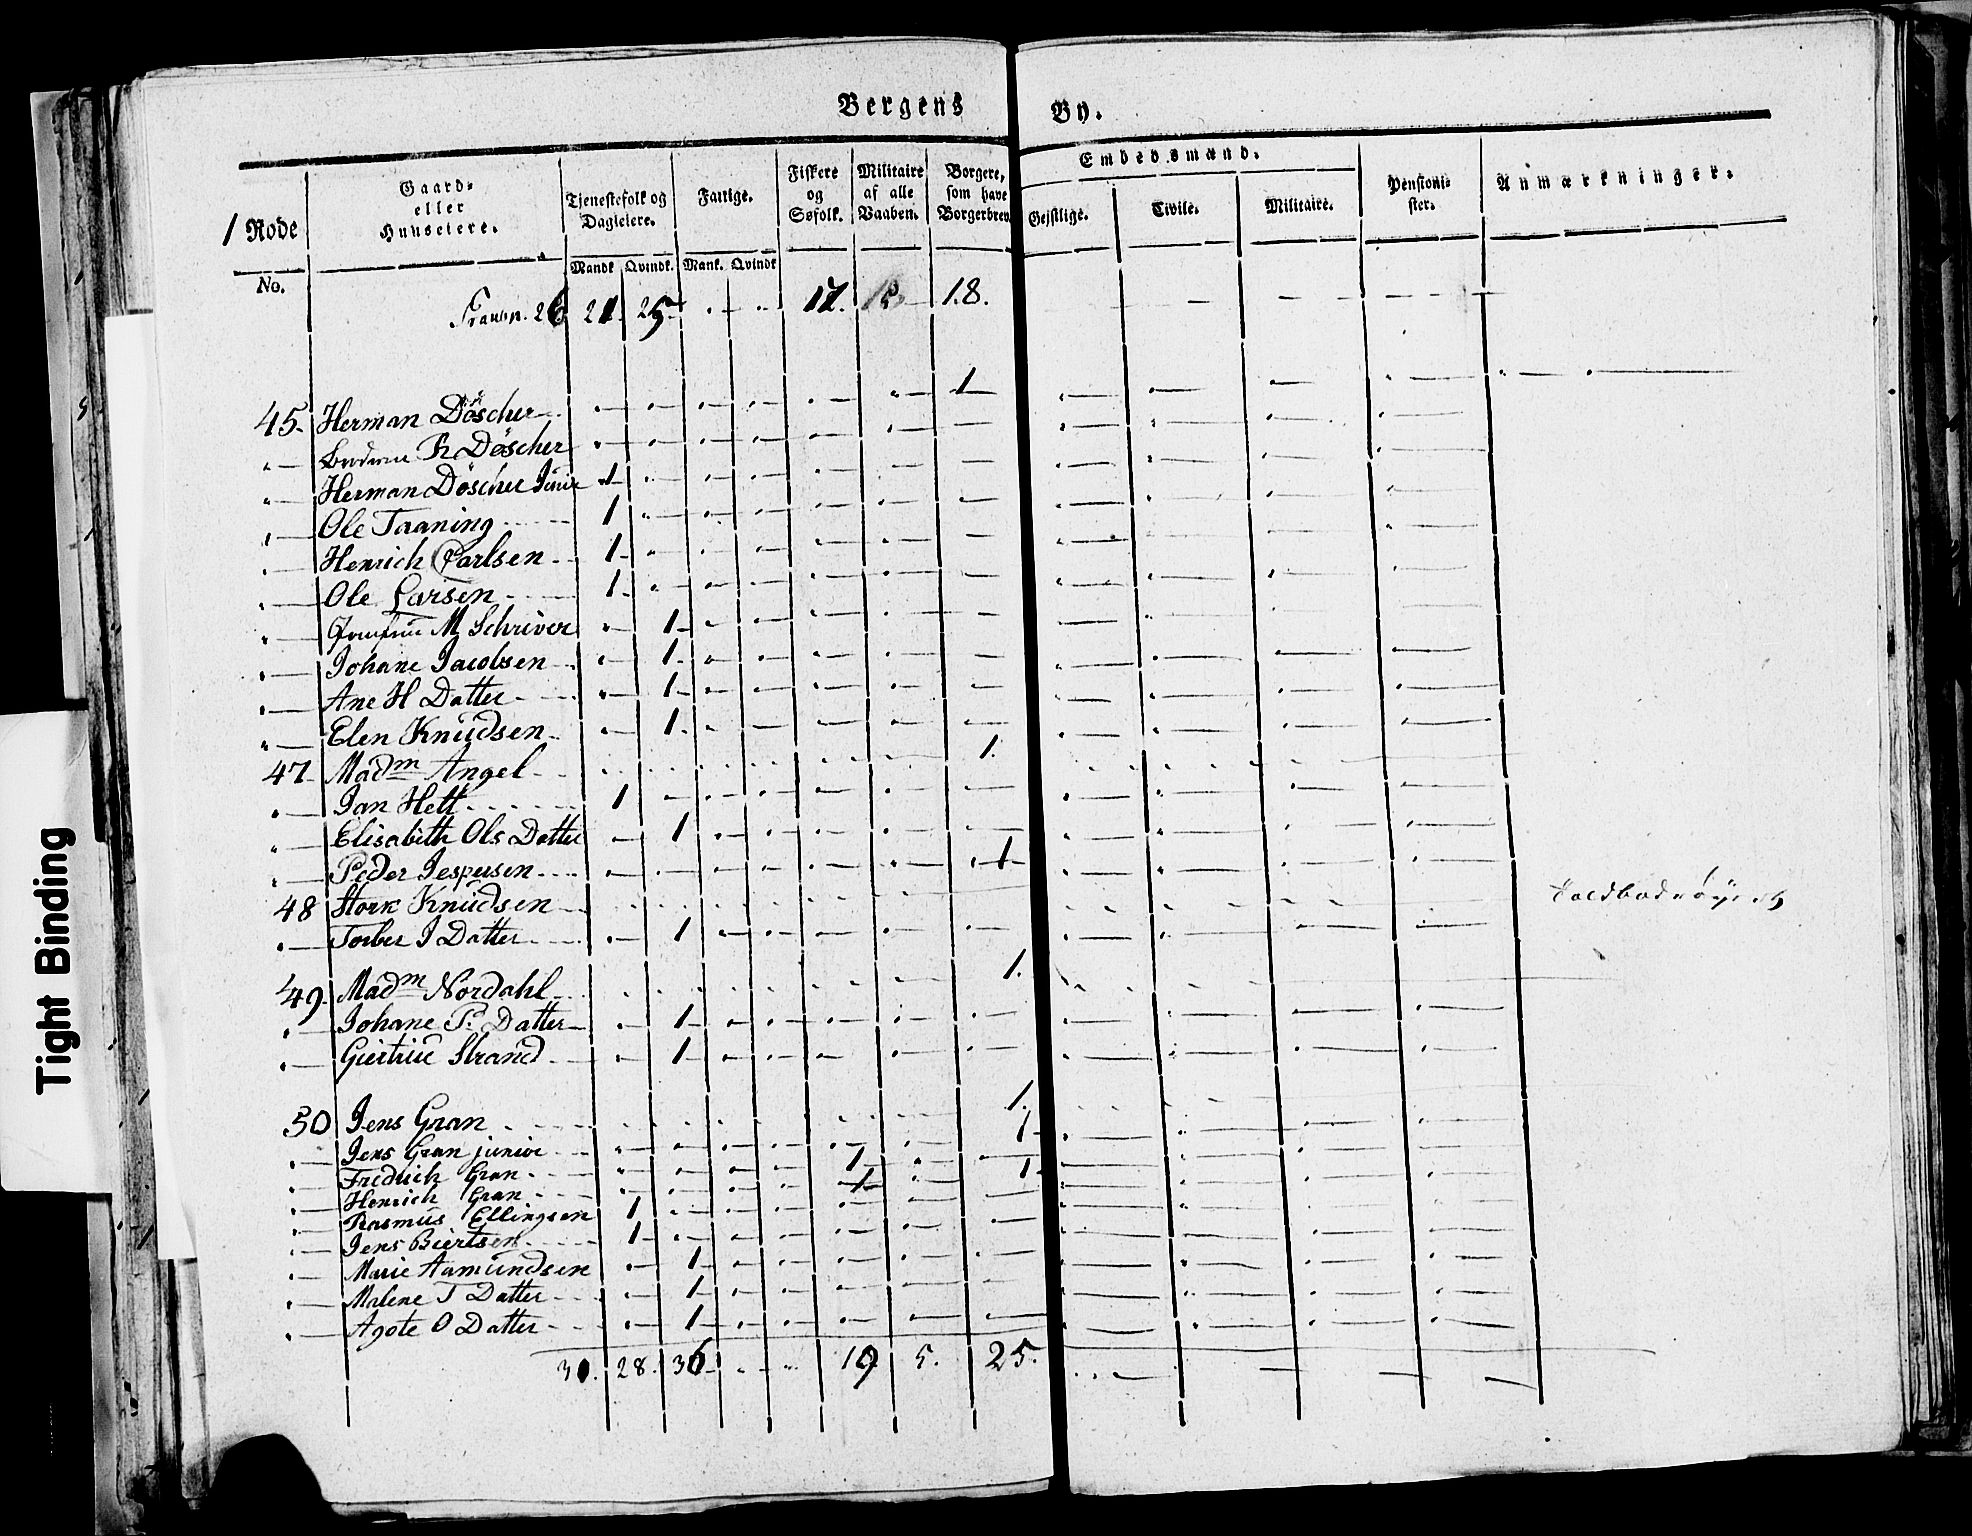 Bergens By.
1 Rode
Gaard- eller Huuseiere.
Tjenestefolk og Dagleiere.
Fattige.
Fiskere og Søfolk.
Militaire af alle Vaaben.
Borgere, som have Borgerbrev.
Embedsmænd.
Gejstlige. Civile. Militaire.
Pensionister.
Anmærkninger.
No.
Mandk. Qvindk. Mank. Qvindk
Transp. 26 21. 25 17. 18.
45. Herman Döscher 1
R Döscher
Herman Döscher Junior 1
Ole Taaning 1
Henrich Carlsen 1
Ole Larsen 1
Jomfrue M Schriver 1
Johane Jacobsen 1
Ane H Datter 1
Elen Knudsen 1
47 Madm Angel 1.
Jan Hett 1
Elisabeth Ols Datter 1
Peder Jespersen 1
48 Stork Knudsen
Torber I Datter 1
49 Madm Nordahl 1.
Johane P. Datter 1
Giertrue Strand 1
50 Jens Gran 1.
Jens Gran junior 1
Fredrich Gran 1
Henrich Gran 1 1
Rasmus Ellingsen 1
Jens Biertsen 1
Marie Aamundsen 1
Malene T Datter 1
Agote O Datter 1
30. 28. 36 19 5. 25.
Tight Binding